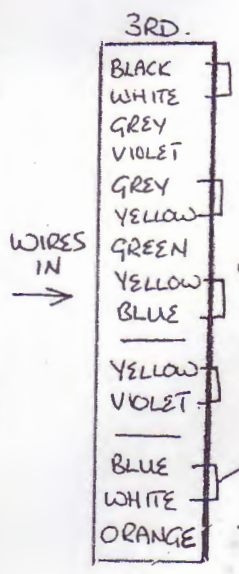 3RD.
BLACK
WHITE
GREY
VIOLET
GREY
YELLOW
WIRES
IN
GREEN
YELLOW
BLUE
YELLOW
VIOLET
BLUE
WHITE
ORANGE